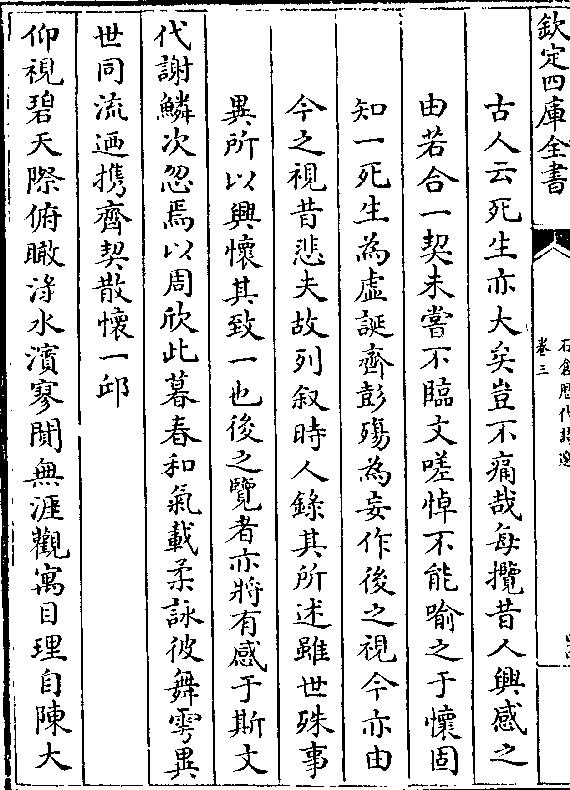 欽定四庫全書
石倉歷代詩選
卷三
古人云死生亦大矣豈不痛哉每攬昔人興感之
由若合一契未嘗不臨文嗟悼不能喻之于懷固
知一死生為虛誕齊彭殤為妄作後之視今亦由
今之視昔悲夫故列叙時人錄其所述雖世殊事
異所以興懷其致一也後之覽者亦將有感于斯文
代謝鱗次忽焉以周欣此暮春和氣載柔詠彼舞雩異
世同流迺携齊契散懷一邱
仰視碧天際俯瞰淥水濱寥閴無涯觀寓目理自陳大